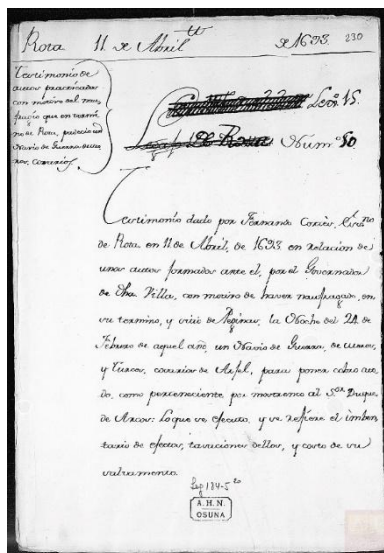 Rota 11 de Abril de 1693. 230
Testimonio de
autos practicados
con motivo del nau-
fragio que en termi-
no de Rota, padecio un
Navio de Guerra de mo-
ros, corsarios.
Leg.º 15.
Núm.º 50.
Testimonio dado por Fernando Cortès, Ess.no
de Rota en 11 de Abril, de 1693 en relacion de
unos autos formados ante èl, por el Governador
de dha. Villa, con motivo de haver naufragado, en
su termino, y sitio de la Noche del 24 de
Febrero de aquel año, un Navio de Guerra, de moros,
y Turcos, corsarios de Arjel, para poner cobro en to-
do, como perteneciente por mostrenco al S.or Duque
de Arcos: Lo que se ejecutò, y se refiere el imben-
tario de efectos, tasaciones dellos, y costo de su
salvamento.
Leg 184-5
A. H. N.
OSUNA